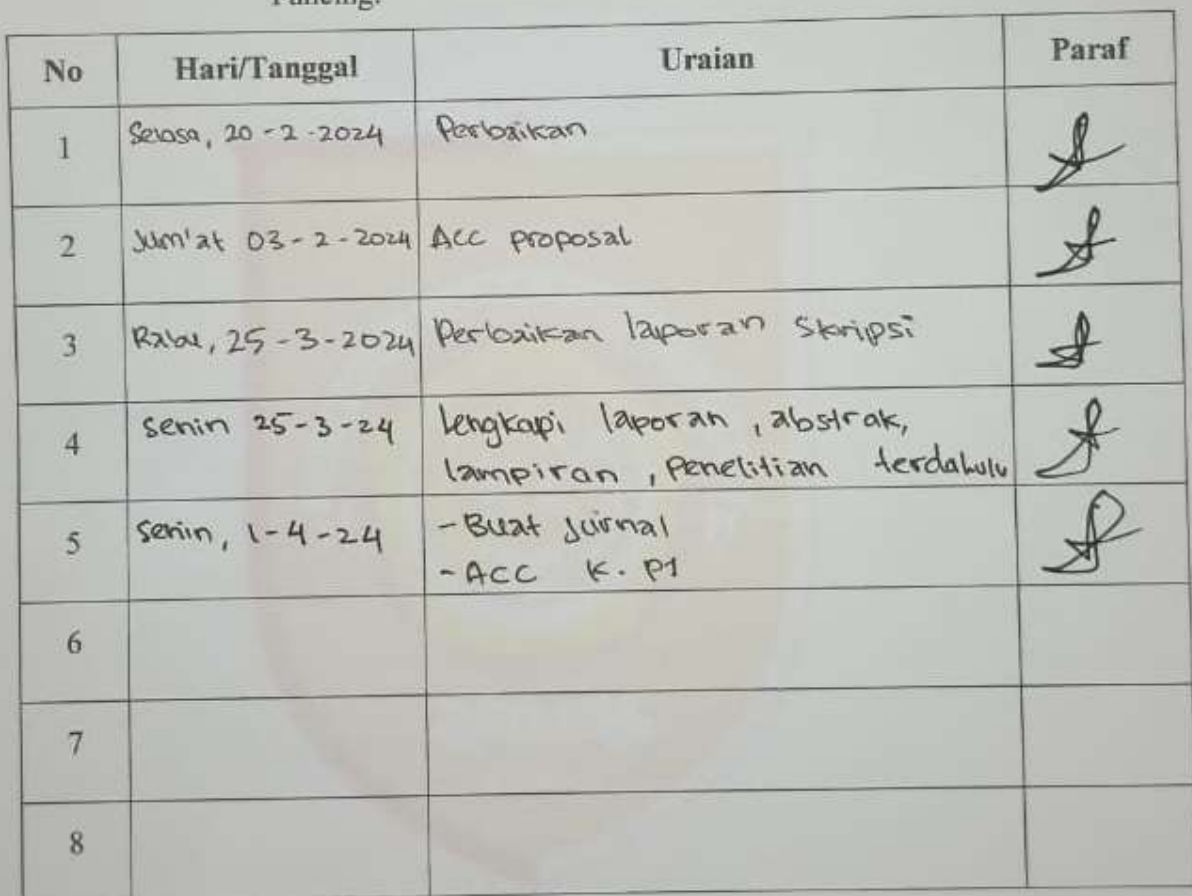 No Hari/Tanggal Uraian Paraf
1 Selasa, 20-2-2024 Perbaikan
2 Jum'at 03-2-2024 ACC proposal
3 Rabu, 25-3-2024 Perbaikan laporan Skripsi
4 senin 25-3-24 lengkapi laporan, abstrak,
lampiran, Penelitian terdahulu
5 senin, 1-4-24 -Buat Jurnal
-ACC K. P1
6
7
8